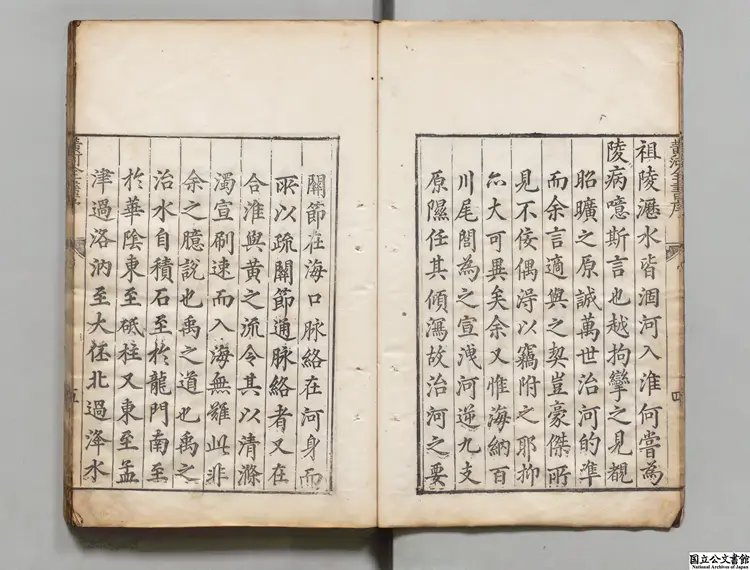 黃河全書序
四
祖陵瀝水皆涸河入淮何嘗為
陵病噫斯言也越拘攣之見覩
昭曠之原誠萬世治河的凖
而余言適與之契豈豪傑所
見不佞偶淂以竊附之耶抑
亦大可異矣余又惟海納百
川尾閭為之宣洩河逆九支
原隰任其傾瀉故治河之要
關節在海口脉絡在河身而
所以疏關節通脉絡者又在
合淮與黃之流令其以清滌
濁宣刷速而入海無難此非
余之臆說也禹之道也禹之
治水自積石至於龍門南至
於華陰東至砥柱又東至孟
津過洛汭至大伾北過洚水
五
国立公文書館
National Archives of Japan